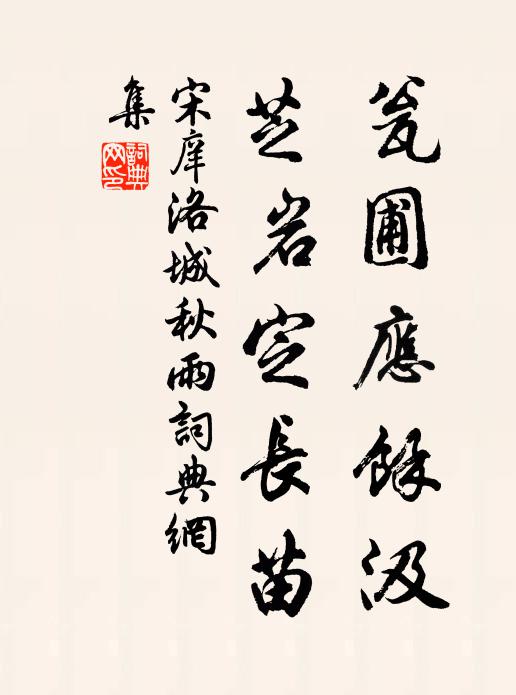 瓮圃應餘汲
芝岩定長苗
宋庠洛城秋雨詞典網
集
詞典網印